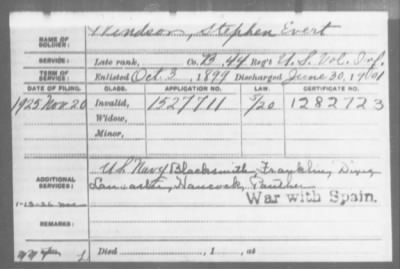 NAME OF SOLDIER: Windsor, Stephen Evert
SERVICE: Late rank, Co. B, 44 Reg't U.S. Vol. Inf.
TERM OF SERVICE: Enlisted Oct. 3, 1899 Discharged June 30, 1901
DATE OF FILING. CLASS. APPLICATION NO. LAW. CERTIFICATE NO.
1925 Nov 20 Invalid, 1527711 1282723
Widow,
Minor,
ADDITIONAL SERVICES: U.S. Navy Blacksmith, Franklin,
Lancaster, Hancock, Panther
War with Spain.
REMARKS:
Died , 1 , at